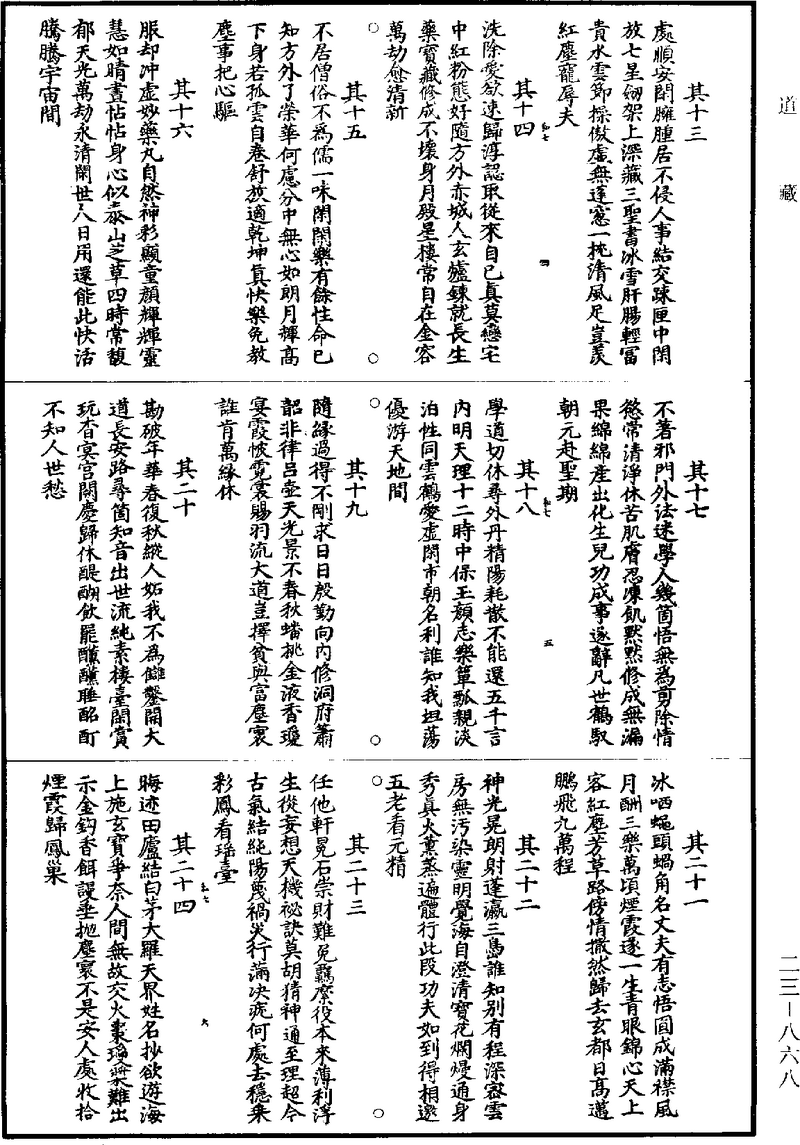 道藏
其十三
處順安閑臃腫居不侵人事結交踈匣中閑
放七星劒架上深藏三聖書冰雪肝腸輕富
貴水雲節操傲虛無蓬窻一枕清風足豈羨
紅塵寵辱夫
其十四
洗除愛欲速歸淳認取從來自己真莫戀宅
中紅粉態好隨方外赤城人玄爐鍊就長生
藥寶藏修成不壞身月殿星樓常自在金容
萬劫愈清新
其十五
不居僧俗不為儒一味閑閑樂有餘性命已
知方外了榮華何慮分中無心如朗月輝高
下身若孤雲自卷舒放適乾坤真快樂免教
塵事把心驅
其十六
服却沖虛妙藥丸自然神彩顯童顏輝輝靈
慧如晴晝怗怗身心似泰山芝草四時常馥
郁天光萬劫永清閑世人日用還能此快活
騰騰宇宙間
其十七
不著邪門外法迷學人幾箇悟無為剪除情
慾常清淨休苦肌膚忍凍飢默默修成無漏
果綿綿產出化生兒功成事遂辭凡世鶴馭
朝元赴聖期
其十八
學道切休尋外丹精陽耗散不能還五千言
內明天理十二時中保玉顏志樂簞瓢親淡
泊性同雲鶴愛虛閑市朝名利誰知我坦蕩
優游天地間
其十九
隨緣過得不剛求日日殷勤向內修洞府簫
韶非律呂壺天光景不春秋蟠桃金液香瓊
宴霞帔霓裳賜羽流大道豈擇貧與富塵寰
誰肯萬緣休
其二十
勘破年華春復秋縱人妬我不為讎鑿開大
道長安路尋箇知音出世流純素樓臺閑賞
玩杳冥宮闕慶歸休醍醐飲罷醺醺睡酩酊
不知人世愁
其二十一
冰哂蠅頭蝸角名丈夫有志悟圓成滿襟風
月酬三樂萬頃煙霞遂一生青眼錦心天上
客紅塵芳草路傍情撒然歸去玄都日高邁
鵬飛九萬程
其二十二
神光晃朗射蓬瀛三島誰知別有程深密雲
房無污染靈明覺海自澄清寶花爛熳通身
秀真火薰蒸遍體行此段功夫如到得相邀
五老看元精
其二十三
任他軒冕石崇財難免羈縻役本來薄利浮
生從妄想天機祕訣莫胡猜神通至理超今
古氣結純陽蔑禍災行滿決疣何處去穩乘
彩鳳看瑤臺
其二十四
晦迹田廬結白茅大羅天界姓名抄欲遊海
上施玄寶爭奈人間無故交火棗瑤漿難出
示金鈎香餌謾垂拋塵寰不是安人處收拾
煙霞歸鳳巢
二三－八六八